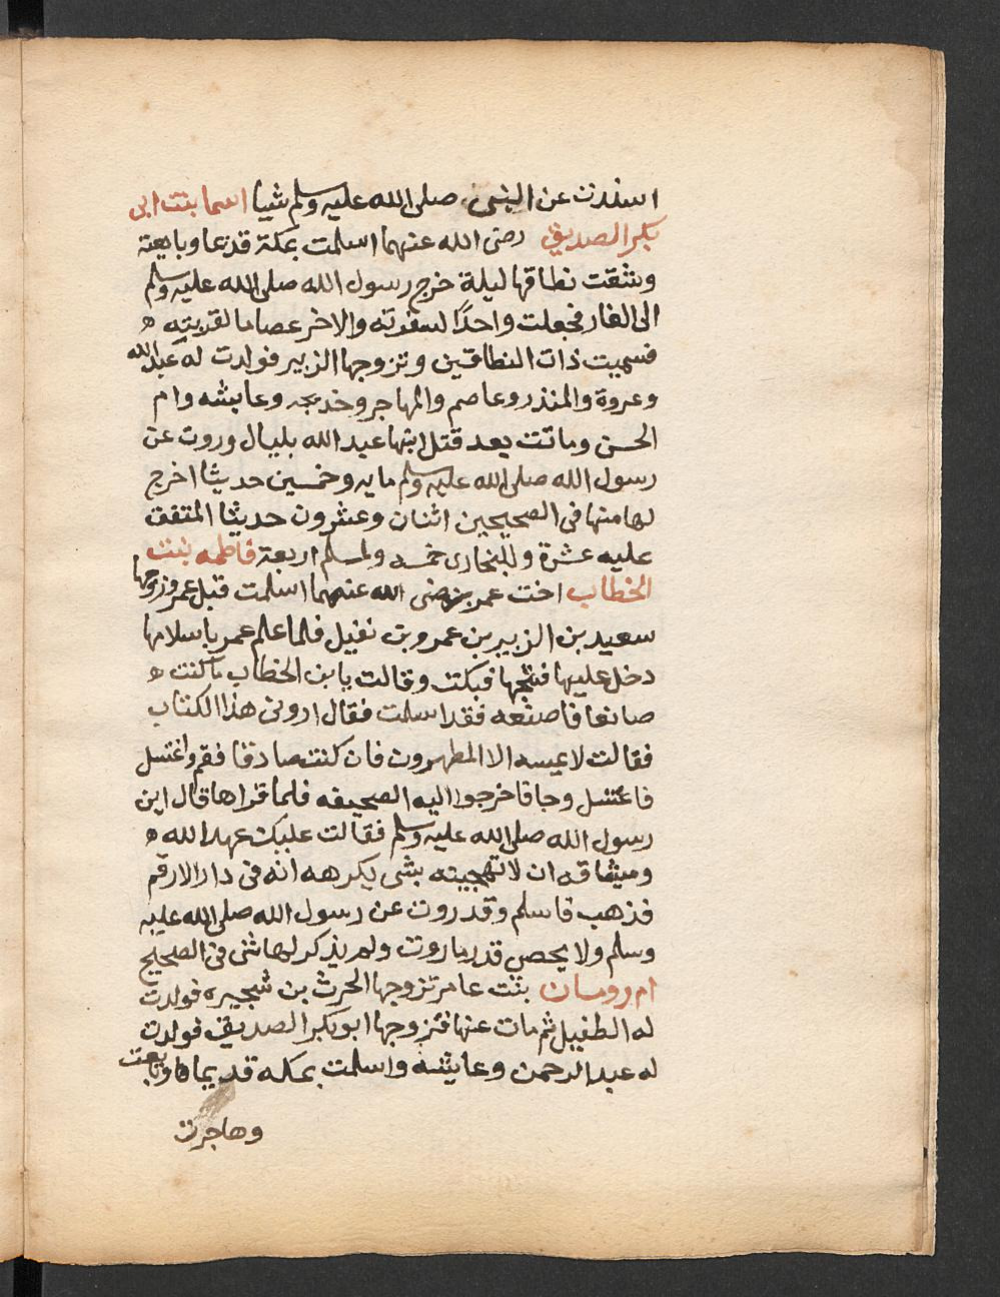 اسندت عن النبى صلى الله عليه وسلم شيا اسما بنت ابى
بكر الصديق رضى الله عنهما اسلمت بمكة قديما وبايعته
وشقت نطاقها ليلة خرج رسول الله صلى الله عليه وسلم
الى الغار فجعلت واحدًا لسفرته والاخر عصاما لقربته ه
فسميت ذات النطاقين وتزوجها الزبير فولدت له عبد الله
وعروة والمنذر وعاصم والمهاجر وخديجه وعايشه وام
الحسن وماتت بعد قتل ابنها عبد الله بليال وروت عن
رسول الله صلى الله عليه وسلم مايه وخمسين حديثا اخرج
لها منها فى الصحيحين اثنان وعشرون حديثا المتفق
عليه عشرة وللبخارى خمسه ولمسلم اربعة فاطمه بنت
الخطاب اخت عمر رضى الله عنهما اسلمت قبل عمر وزوجها
سعيد بن الزبير بن عمرو بن نفيل فلما علم عمر باسلامها
دخل عليها فشجها فبكت وقالت يابن الخطاب ما كنت ه
صانعا فاصنعه فقد اسلمت فقال ارونى هذا الكتاب
فقالت لا يمسه الا المطهرون فان كنت صادقا فقم واغتسل
فاغتسل وجا فاخرجوا اليه الصحيفه فلما قراها قال اين
رسول الله صلى الله عليه وسلم فقالت عليك عهد الله ه
وميثاقه ان لا تهجينه بشى يكرهه انه فى دار الارقم
فذهب فاسلم وقد روت عن رسول الله صلى الله عليه
وسلم ولا يحصى قدر ما روت ولم يذكر لها شى فى الصحيح
ام رومان بنت عامر تزوجها الحرث بن شجيره فولدت
له الطفيل ثم مات عنها فتزوجها ابو بكر الصديق فولدت
له عبد الرحمن وعايشه واسلمت بمكه قديما وبايعت
وهاجرت